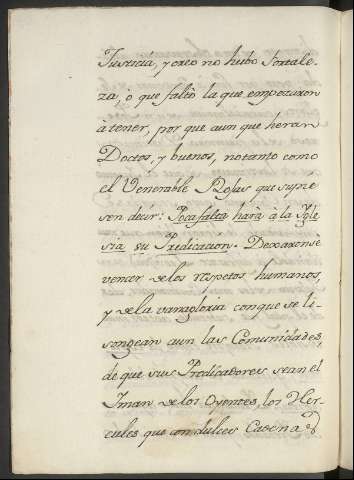 Justicia, y creo no hubo fortale-
za, ò que faltò la que empezaron
à tener, por que aun que heran
Doctos, y buenos, no tanto como
el Venerable Rojas que supie
sen decir: Poca falta harà à la Igle
sia su Predicacion. Dexaronse
vencer de los respetos humanos,
y de la vanagloria con que se li-
songean aun las Comunidades,
de que sus Predicadores sean el
Iman de los Oyentes, los Her-
cules que con dulces Cadenas